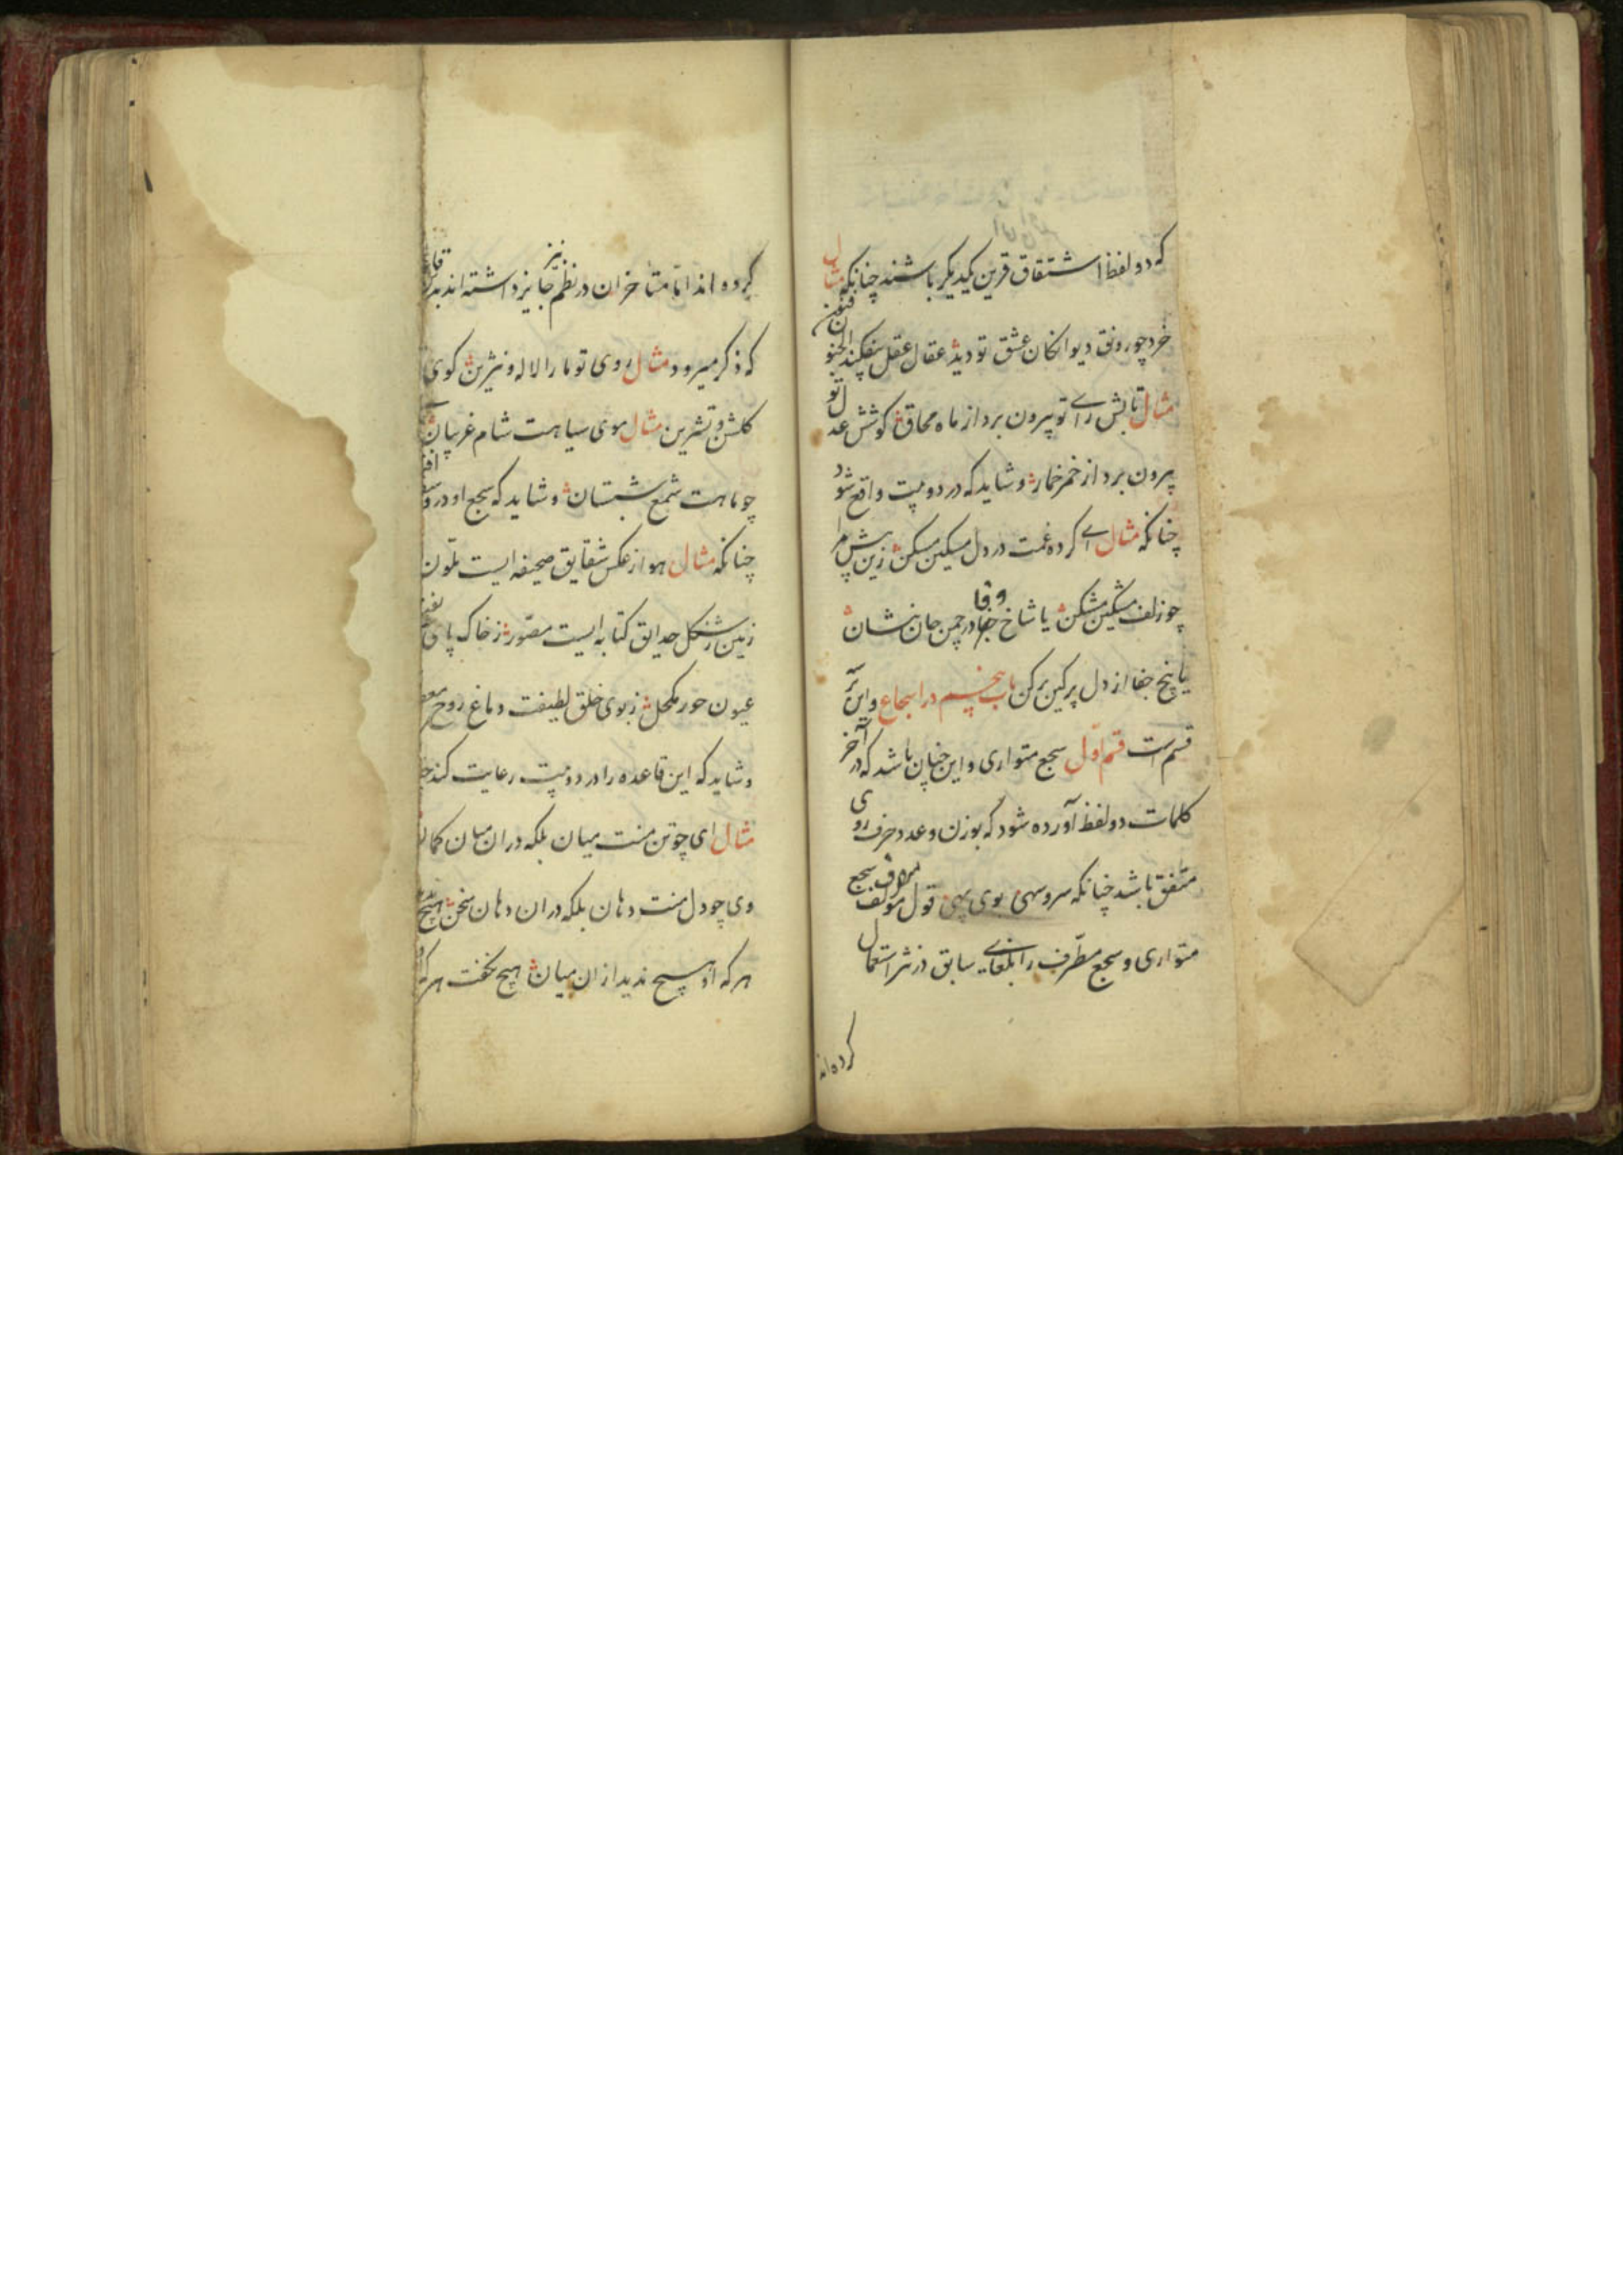 که دو لفظ اشتقاق قرین یکدیکر باشند چنانکه مثال
خرد چو رونق دیوانکان عشق تو دید عقال عقل بیفکند الجنون فنون
مثال تابش رای تو بیرون برد از ماه محاق کوشش عدل تو
بیرون برد از خمر خمار و شاید که در دو بیت واقع شود
چنانکه مثال ای کرده غمت در دل مسکین مسکن زین بیش مرا
چو زلف مشکین مشکن یا شاخ وفا در چمن جان بنشان
یا بیخ جفا از دل پر کین بر کن باب پنجم در اسجاع و این بر
قسم است قسم اول سجع متوازی و این چنان باشد که در آخر
کلمات دو لفظ آورده شود که بوزن و عدد حرف روی
متفق باشد چنانکه سرو سهی بوی بهی قول مولف سجع
متوازی و سجع مطرف را بلغای سابق در نثر استعمال
کرده اند
کرده اند اما متأخران در نظم نیز جایز داشته اند
که ذکر میرود مثال روی تو ما را لاله و نسرین کوی
کلشن و تشرین مثال موی سیاهت شام غریبان
چو ماهت شمع شبستان و شاید که سجع او در
چنانکه مثال هوا ز عکس شقایق صحیفه ایست ملون
زمین ز شکل حدایق کتابه ایست مصور ز خاک پای
عیون حور مکحل ز بوی خلق لطیفت دماغ روح
و شاید که این قاعده را در دو بیت رعایت کند
مثال ای چو تن منت میان بلکه در ان میان کمان
وی چو دل منت دهان بلکه در ان دهان سخن هیچ
هر که از هیچ ندید از ان میان هیچ نکفت هر که